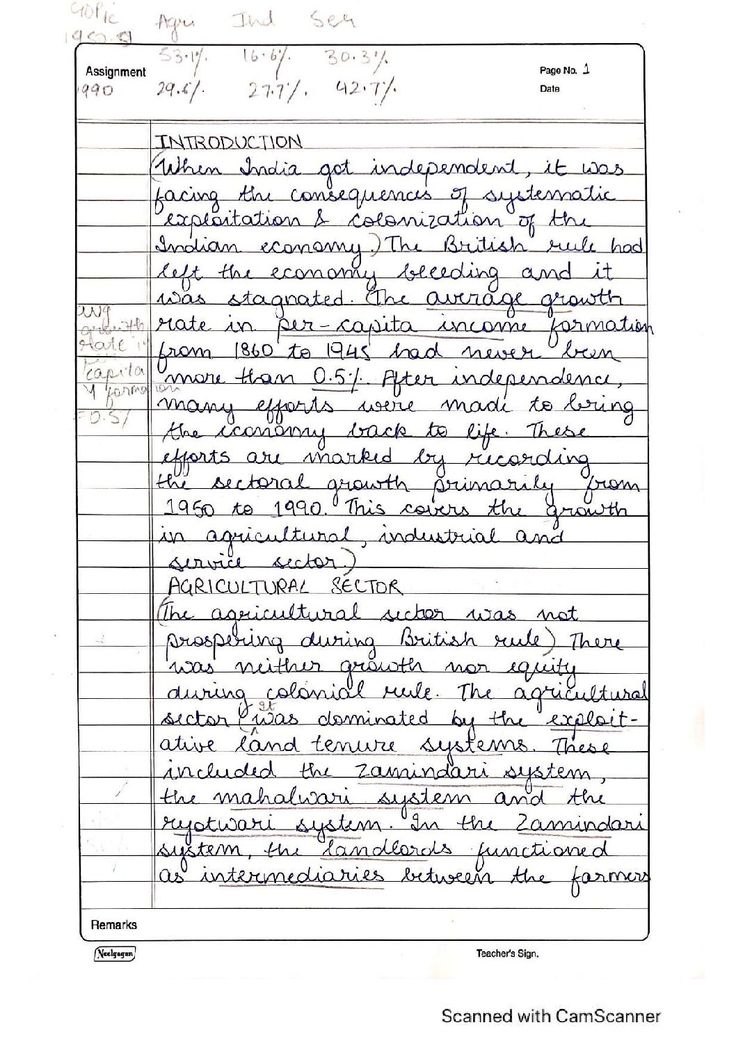 GDPic Agri Ind Ser
1950-51
53.1% 16.6% 30.3%
Assignment
Page No. 1
1990 29.6% 27.7% 42.7%
Date
INTRODUCTION
(When India got independent, it was
facing the consequences of systematic
exploitation & colonization of the
Indian economy.) The British rule had
left the economy bleeding and it
was stagnated. (The average growth
rate in per-capita income formation
from 1860 to 1945 had never been
more than 0.5%. After independence,
many efforts were made to bring
the economy back to life. These
efforts are marked by recording
the sectoral growth primarily from
1950 to 1990. This covers the growth
in agricultural, industrial and
service sector.)
avg
growth
rate in
capita
Y formation
=0.5%
AGRICULTURAL SECTOR
(The agricultural sector was not
prospering during British rule.) There
was neither growth nor equity
during colonial rule. The agricultural
sector (It was dominated by the exploit-
ative land tenure systems. These
included the Zamindari system,
the mahalwari system and the
ryotwari system. In the Zamindari
system, the landlords functioned
as intermediaries between the farmers
Remarks
Neelgagan
Teacher's Sign.
Scanned with CamScanner